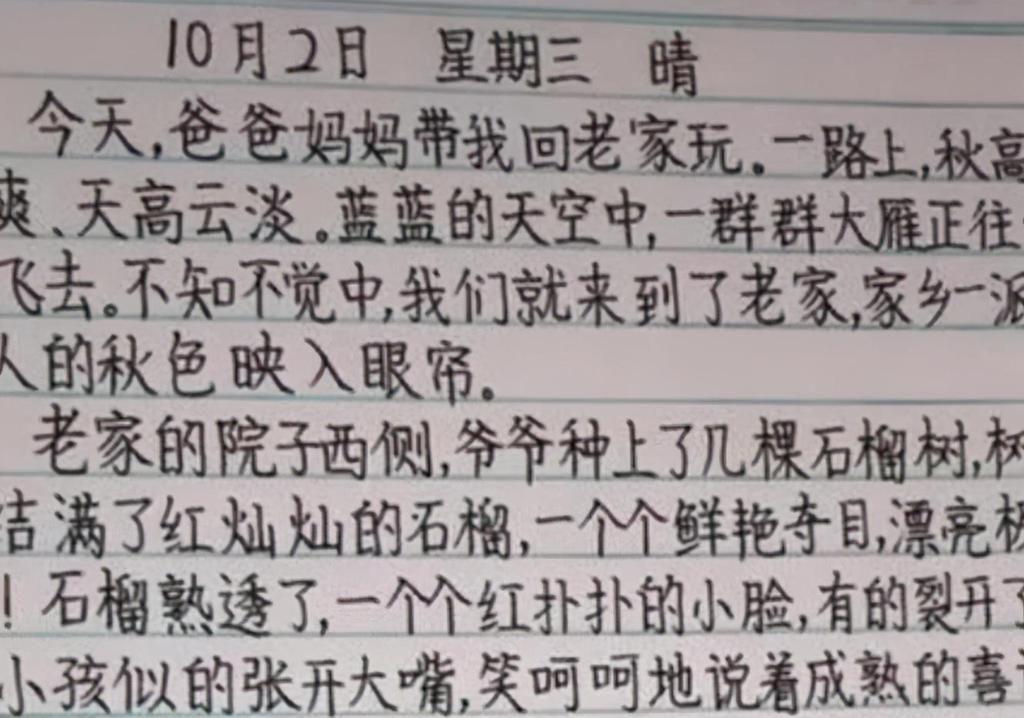 10月2日 星期三 晴
今天,爸爸妈妈带我回老家玩。一路上,秋高
爽、天高云淡。蓝蓝的天空中,一群群大雁正往
飞去。不知不觉中,我们就来到了老家,家乡一派
人的秋色映入眼帘。
老家的院子西侧,爷爷种上了几棵石榴树,树
结满了红灿灿的石榴,一个个鲜艳夺目,漂亮极
!石榴熟透了,一个个红扑扑的小脸,有的裂开了
小孩似的张开大嘴,笑呵呵地说着成熟的喜